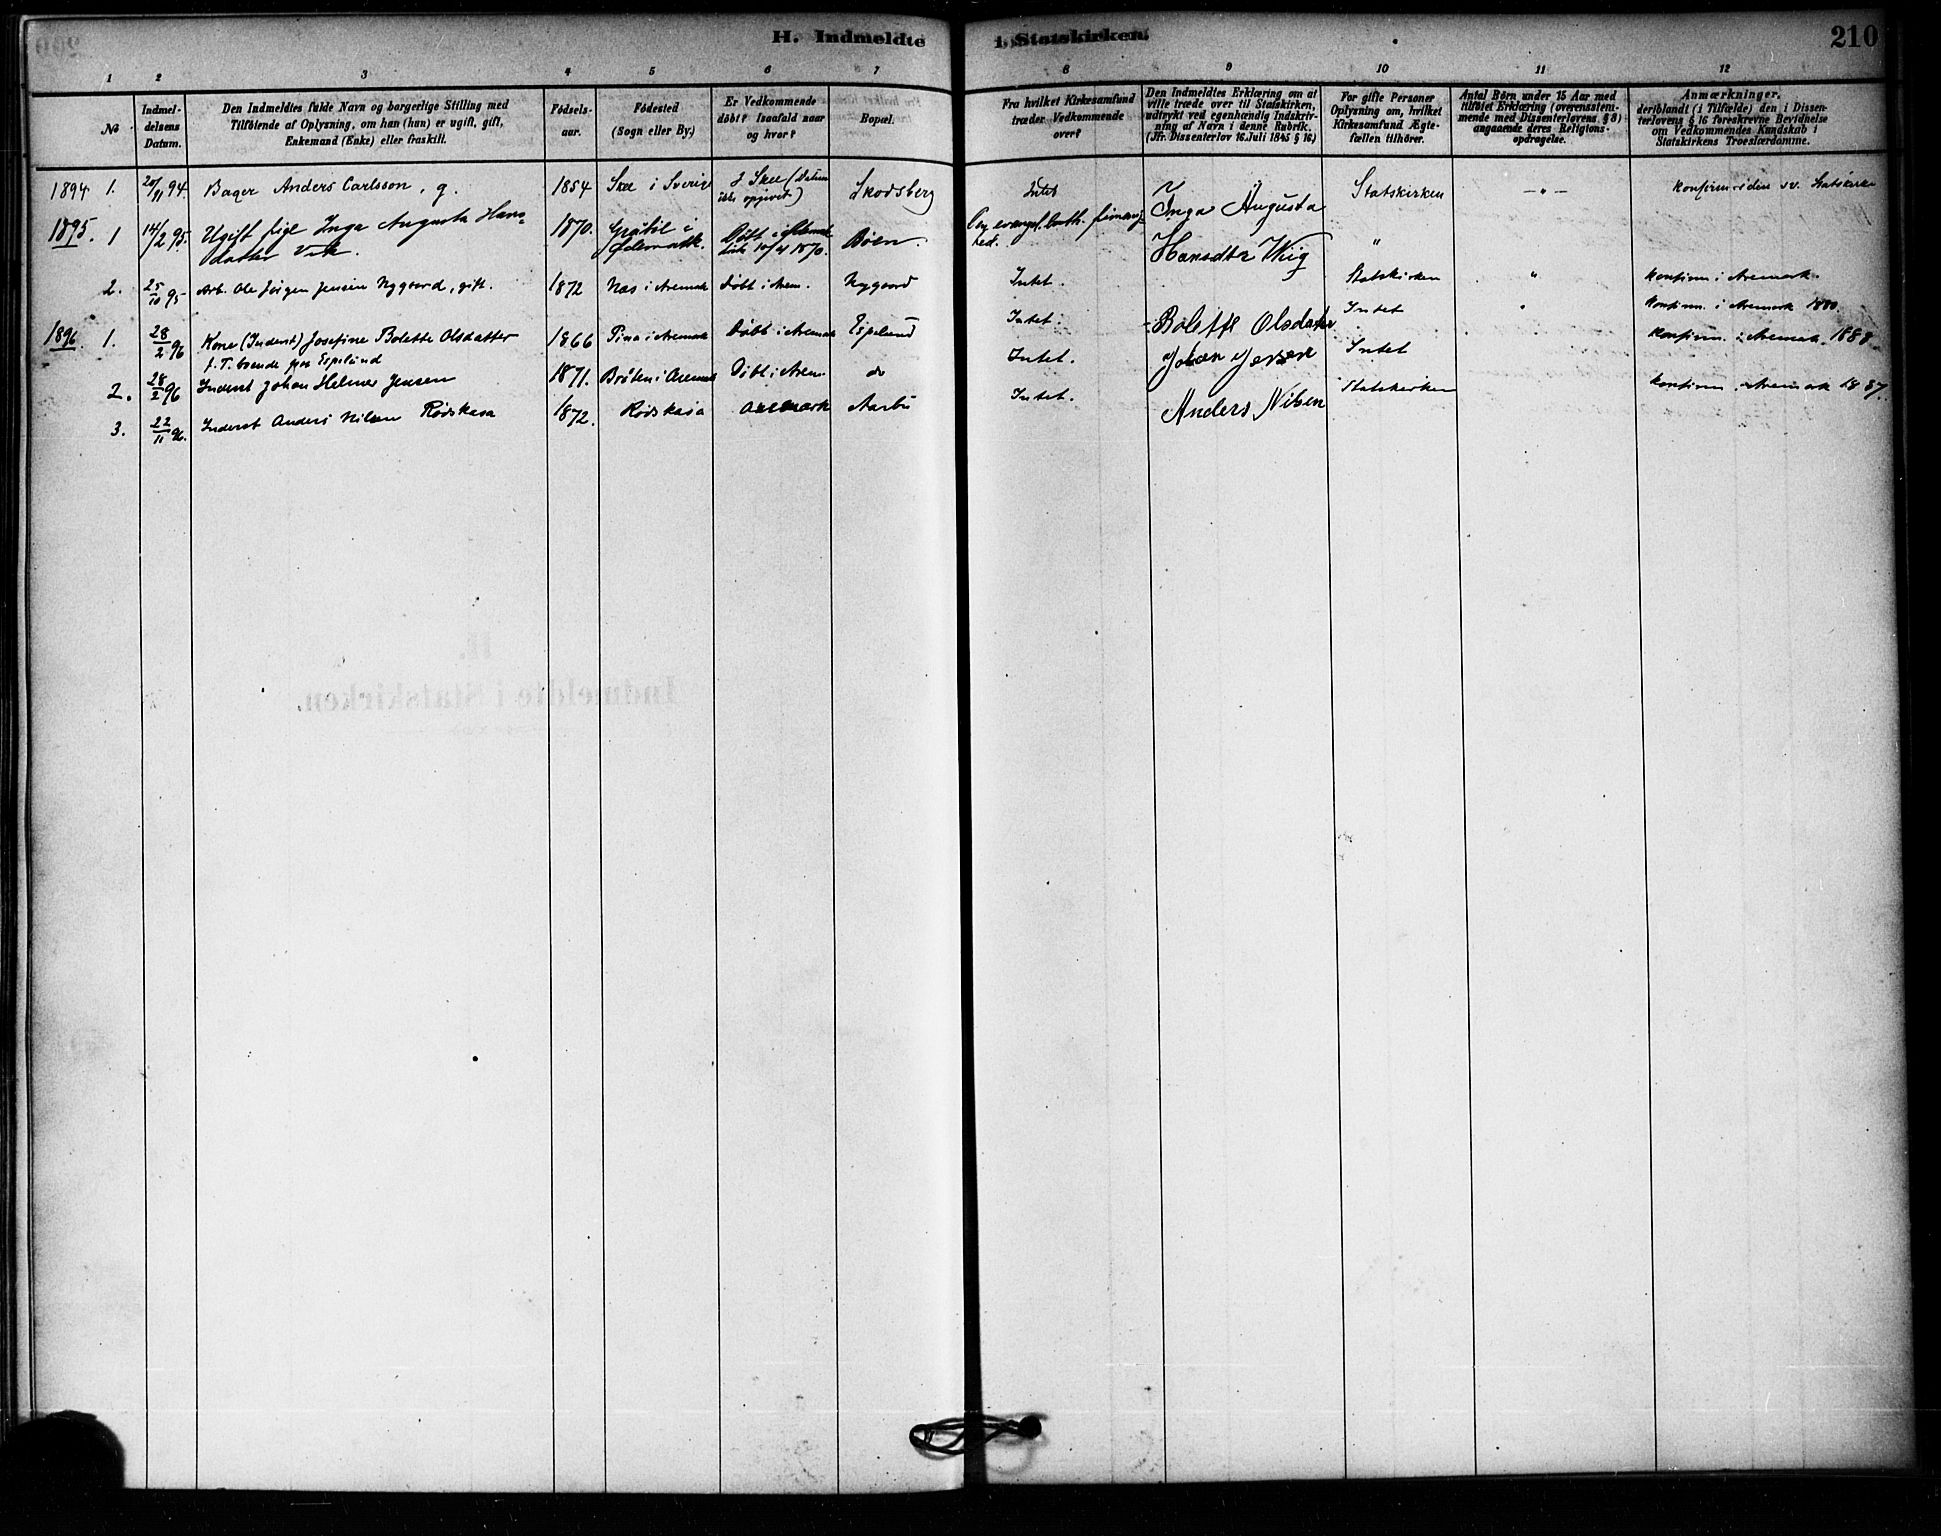 H. Indmeldte i Statskirken.
210
1 2 3 4 5 6 7 8 9 10 11 12
№
Indmel-
delsens
Datum.
Den Indmeldtes fulde Navn og borgerlige Stilling med
Tilföiende af Oplysning, om han (hun) er ugift, gift,
Enkemand (Enke) eller fraskilt.
Födsels-
aar.
Födested
(Sogn eller By.)
Er Vedkommende
döbt? Isaafald naar
og hvor?
Bopæl.
Fra hvilket Kirkesamfund
træder Vedkommende
over?
Den Indmeldtes Erklæring om at
ville træde over til Statskirken,
udtrykt ved egenhændig Indskriv-
ning af Navn i denne Rubrik.
(Jfr. Dissenterlov 16. Juli 1845 § 16)
For gifte Personer
Oplysning om, hvilket
Kirkesamfund Ægte-
fællen tilhörer.
Antal Börn under 15 Aar med
tilföiet Erklæring (overensstem-
mende med Dissenterlovens § 8)
angaaende deres Religions-
opdragelse.
Anmærkninger,
deriblandt (i Tilfælde) den i Dissen-
terlovens § 16 foreskrevne Bevidnelse
om Vedkommendes Kundskab i
Statskirkens Troeslærdomme.
1894 1. 20/11 94. Bager Anders Carlsson, g. 1854 Skee i Sverige i Skee (Datum
ikke opgivet) Skodsberg Intet Statskirken — " — Konfirm. i den sv. Statskirke
1895. 1 14/2 95. Ugift Pige Inga Augusta Hans-
datter Vik. 1870. i Öiemark. Döbt i Öiemark
10/4 1870. Böen. evangl. luth.
Inga Augusta
Hansdtr Wiig "
2. 25/10 95 Arb. Ole Jörgen Jensen Nygaard, gift. 1872 Næs i Aremark döbt i Arem. Nygaard Intet. Statskirken " Konfirm. i Aremark.
1896. 1. 28/2 96 Kone (Inderst) Josefine Bolette Olsdatter
f. T. boende hos Espelund 1866 i Aremark Döbt i Aremark Espelund Intet. Bolette Olsdatter Intet " Konfirm. i Aremark 1880.
2. 28/2 96 Inderst Johan Helmer Jensen 1871. Bröten i Aremark Döbt i Arem. do Intet. Johan Jensen Intet Konfirm. i Aremark. 1888
3. 22/11 96. Inderst Anders Nilsen Rödskasa 1872. Rödskasa Aremark Aarbu Intet. Anders Nilsen Statskirken Konfirm. i Aremark 1887.